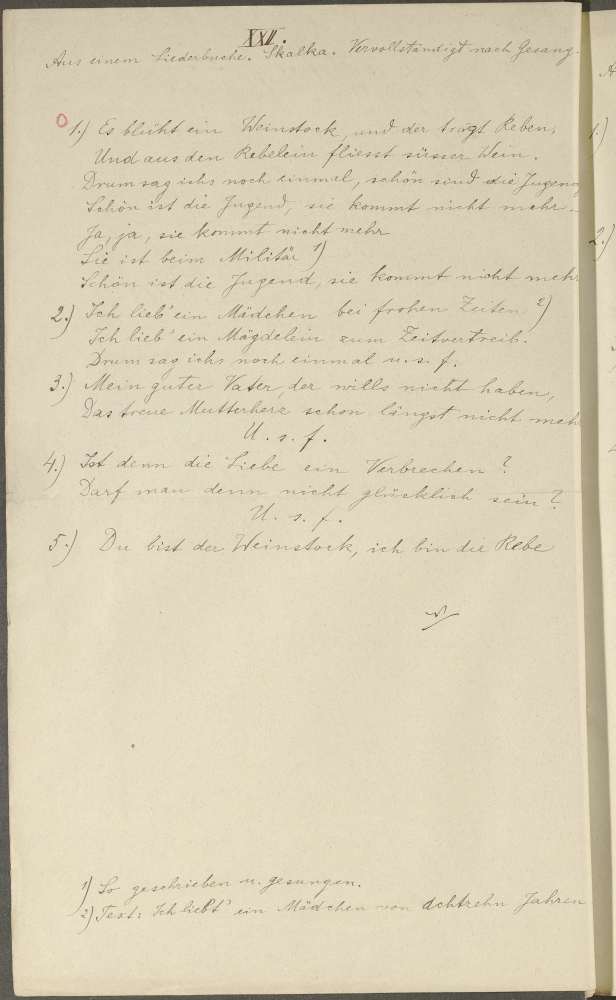 XXII.
Aus einem Liederbuche. Skalka. Vervollständigt nach Gesang.
1.) Es blüht ein Weinstock, und der trägt Reben,
Und aus den Rebelein fliesst süsser Wein.
Drum sag ichs noch einmal, schön sind die Jugend
Schön ist die Jugend, sie kommt nicht mehr.
Ja, ja, sie kommt nicht mehr
Sie ist beim Militär 1)
Schön ist die Jugend, sie kommt nicht mehr
2.) Ich lieb' ein Mädchen bei frohen Zeiten 2)
Ich lieb' ein Mägdelein zum Zeitvertreib.
Drum sag ichs noch einmal u. s. f.
3.) Mein guter Vater, der wills nicht haben,
Das treue Mutterherz schon längst nicht meh
U. s. f.
4.) Ist denn die Liebe ein Verbrechen?
Darf man denn nicht glücklich sein?
U. s. f.
5.) Du bist der Weinstock, ich bin die Rebe
1) So geschrieben u. gesungen.
2) Text: Ich liebt' ein Mädchen von achtzehn Jahren
1.)
2.)